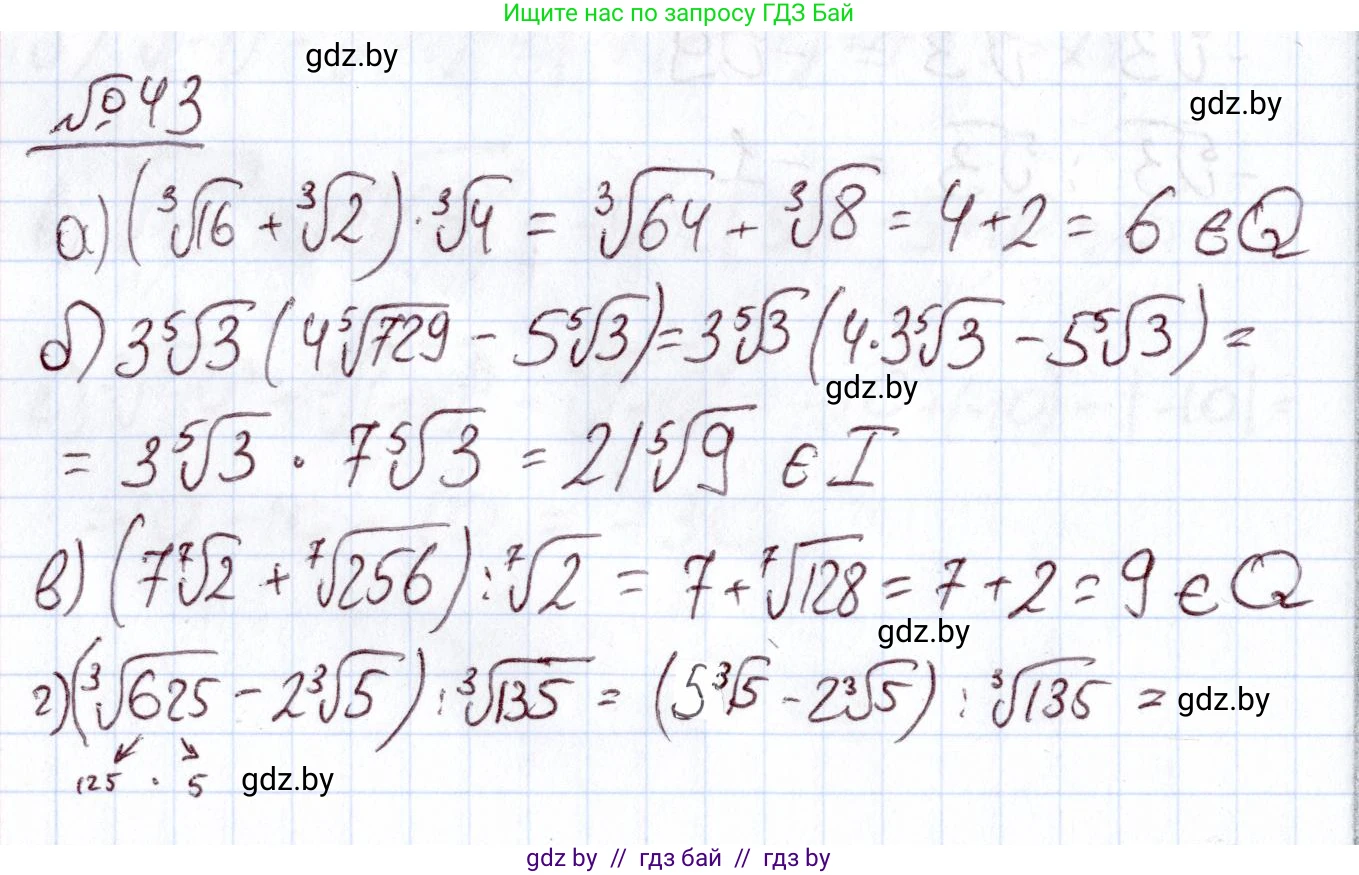 Ищите нас по запросу ГДЗ Бай
gdz.by
№43
gdz.by
а) (∛16 + ∛2) · ∛4 = ∛64 + ∛8 = 4 + 2 = 6 ∈ Q
б) 3⁵√3 (4⁵√729 - 5⁵√3) = 3⁵√3 (4·3⁵√3 - 5⁵√3) =
gdz.by
= 3⁵√3 · 7⁵√3 = 21⁵√9 ∈ I
в) (7⁷√2 + ⁷√256) : ⁷√2 = 7 + ⁷√128 = 7 + 2 = 9 ∈ Q
gdz.by
г) (∛625 - 2∛5) : ∛135 = (5∛5 - 2∛5) : ∛135 =
gdz.by
125 · 5
gdz.by
gdz by // гдз бай // гдз by